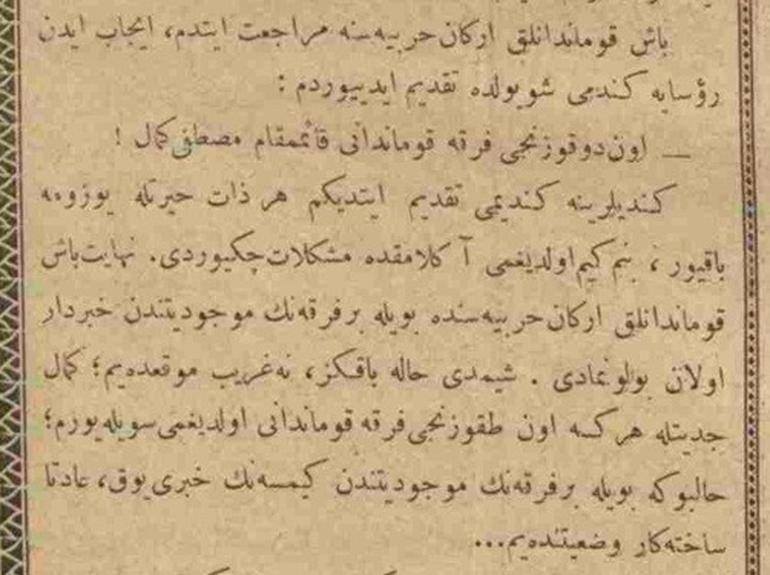 باش قوماندانلق اركان حربيه‌سنه مراجعت ايتدم، ايجاب ايدن
رؤسايه كندمى شويولده تقديم ايدييوردم :
— اون دوقوزنجى فرقه قوماندانى قائممقام مصطفى كمال !
كنديلرينه كنديمى تقديم ايتديكم هر ذات حيرتله يوزومه
باقيور ، بنم كيم اولديغمى آ كلامقده مشكلات چكيوردى. نهايت باش
قوماندانلق اركان حربيه‌سنده بويله بر فرقه‌نك موجوديتندن خبردار
اولان بولونمادى . شيمدى حاله باقكز، نه غريب موقعده‌يم؛ كمال
جديتله هر كسه اون طقوزنجى فرقه قوماندانى اولديغمى سويله‌يورم؛
حالبوكه بويله بر فرقه‌نك موجوديتندن كيمسه‌نك خبرى يوق، عادتا
ساخته‌كار وضعيتنده‌يم...